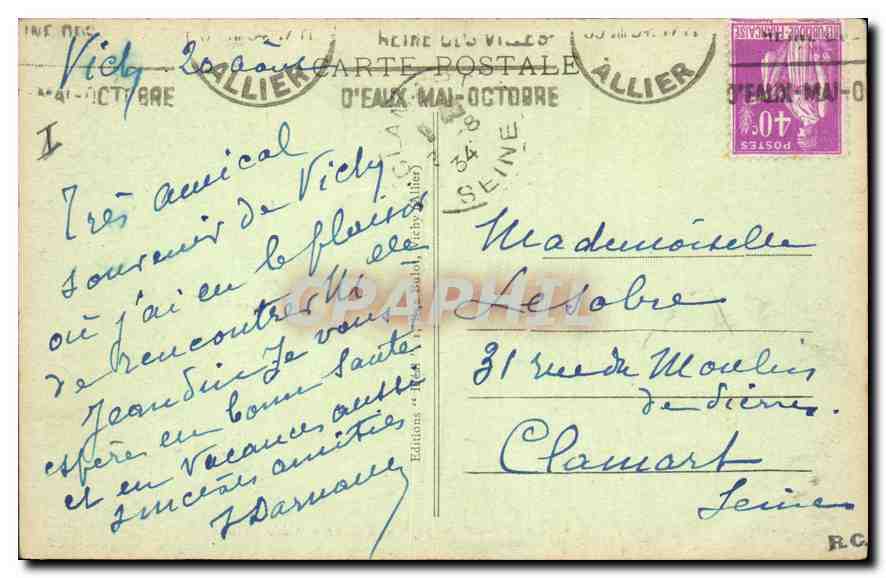 REINE DES VILLES
D'EAUX·MAI-OCTOBRE
ALLIER
ALLIER
MAI-OCTOBRE
D'EAUX·MAI-O
CARTE POSTALE
POSTES
40c
REPUBLIQUE FRANÇAISE
CLAM
8
34
SEINE
Vichy 20 août
I
Très amical
souvenir de Vichy
où j'ai eu le plaisir
de rencontrer Mlle
Jeandin Je vous
espère en bonne santé
et en vacances aussi
sincères amitiés
Editions
Vichy (Allier)
CPAPHIL
Mademoiselle
Lesobre
31 rue du Moulin
de Pierres.
Clamart
Seine
R.C.